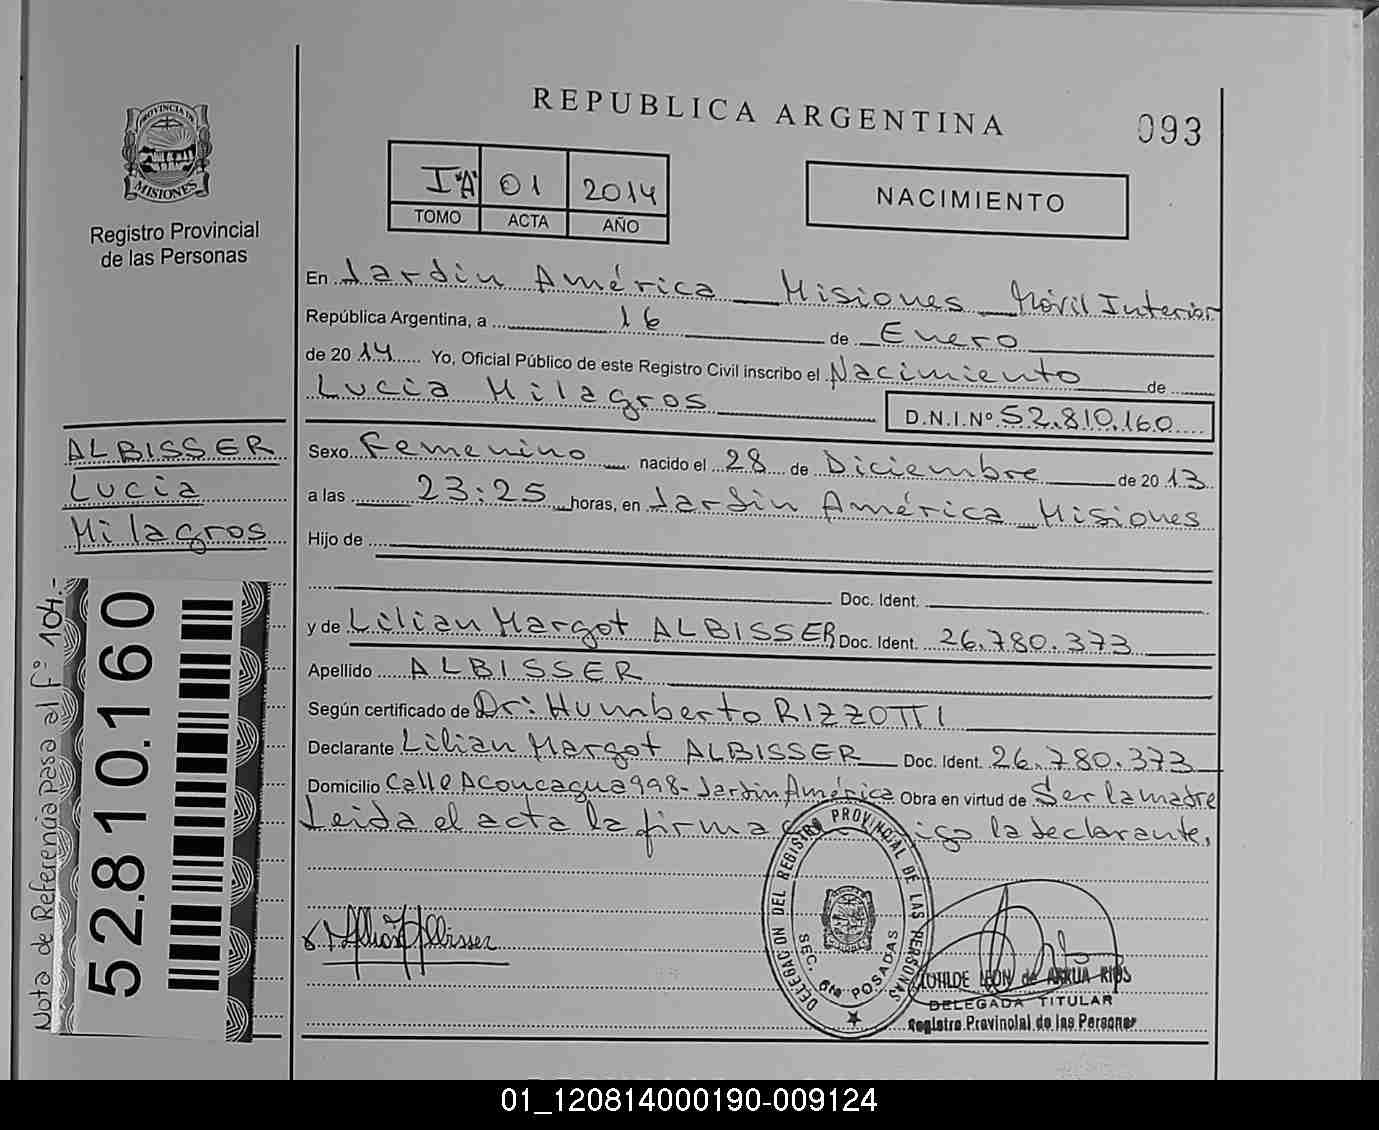 REPUBLICA ARGENTINA
093
PROVINCIA DE
MISIONES
Registro Provincial
de las Personas
I "A" 01 2014
TOMO ACTA AÑO
NACIMIENTO
En Jardin América Misiones Móvil Interior
República Argentina, a 16 de Enero
de 2014 Yo, Oficial Público de este Registro Civil inscribo el Nacimiento de
Lucia Milagros D.N.I.Nº 52.810.160
ALBISSER
Lucia
Milagros
Sexo Femenino nacido el 28 de Diciembre de 2013
a las 23:25 horas, en Jardin América Misiones
Hijo de
Doc. Ident.
y de Lilian Margot ALBISSER Doc. Ident. 26.780.373
Apellido ALBISSER
Según certificado de Dr: Humberto RIZZOTTI
Declarante Lilian Margot ALBISSER Doc. Ident. 26.780.373
Domicilio Calle Aconcagua 998- Jardin América Obra en virtud de Ser la madre
Leida el acta la firma la declarante.
Nota de Referencia pasa al Fº 104.-
52.810.160
DELEGACION DEL REGISTRO PROVINCIAL DE LAS PERSONAS
SEC. 6ta POSADAS
LEON de ARRUA RIOS
DELEGADA TITULAR
Registro Provincial de las Personas
01_120814000190-009124